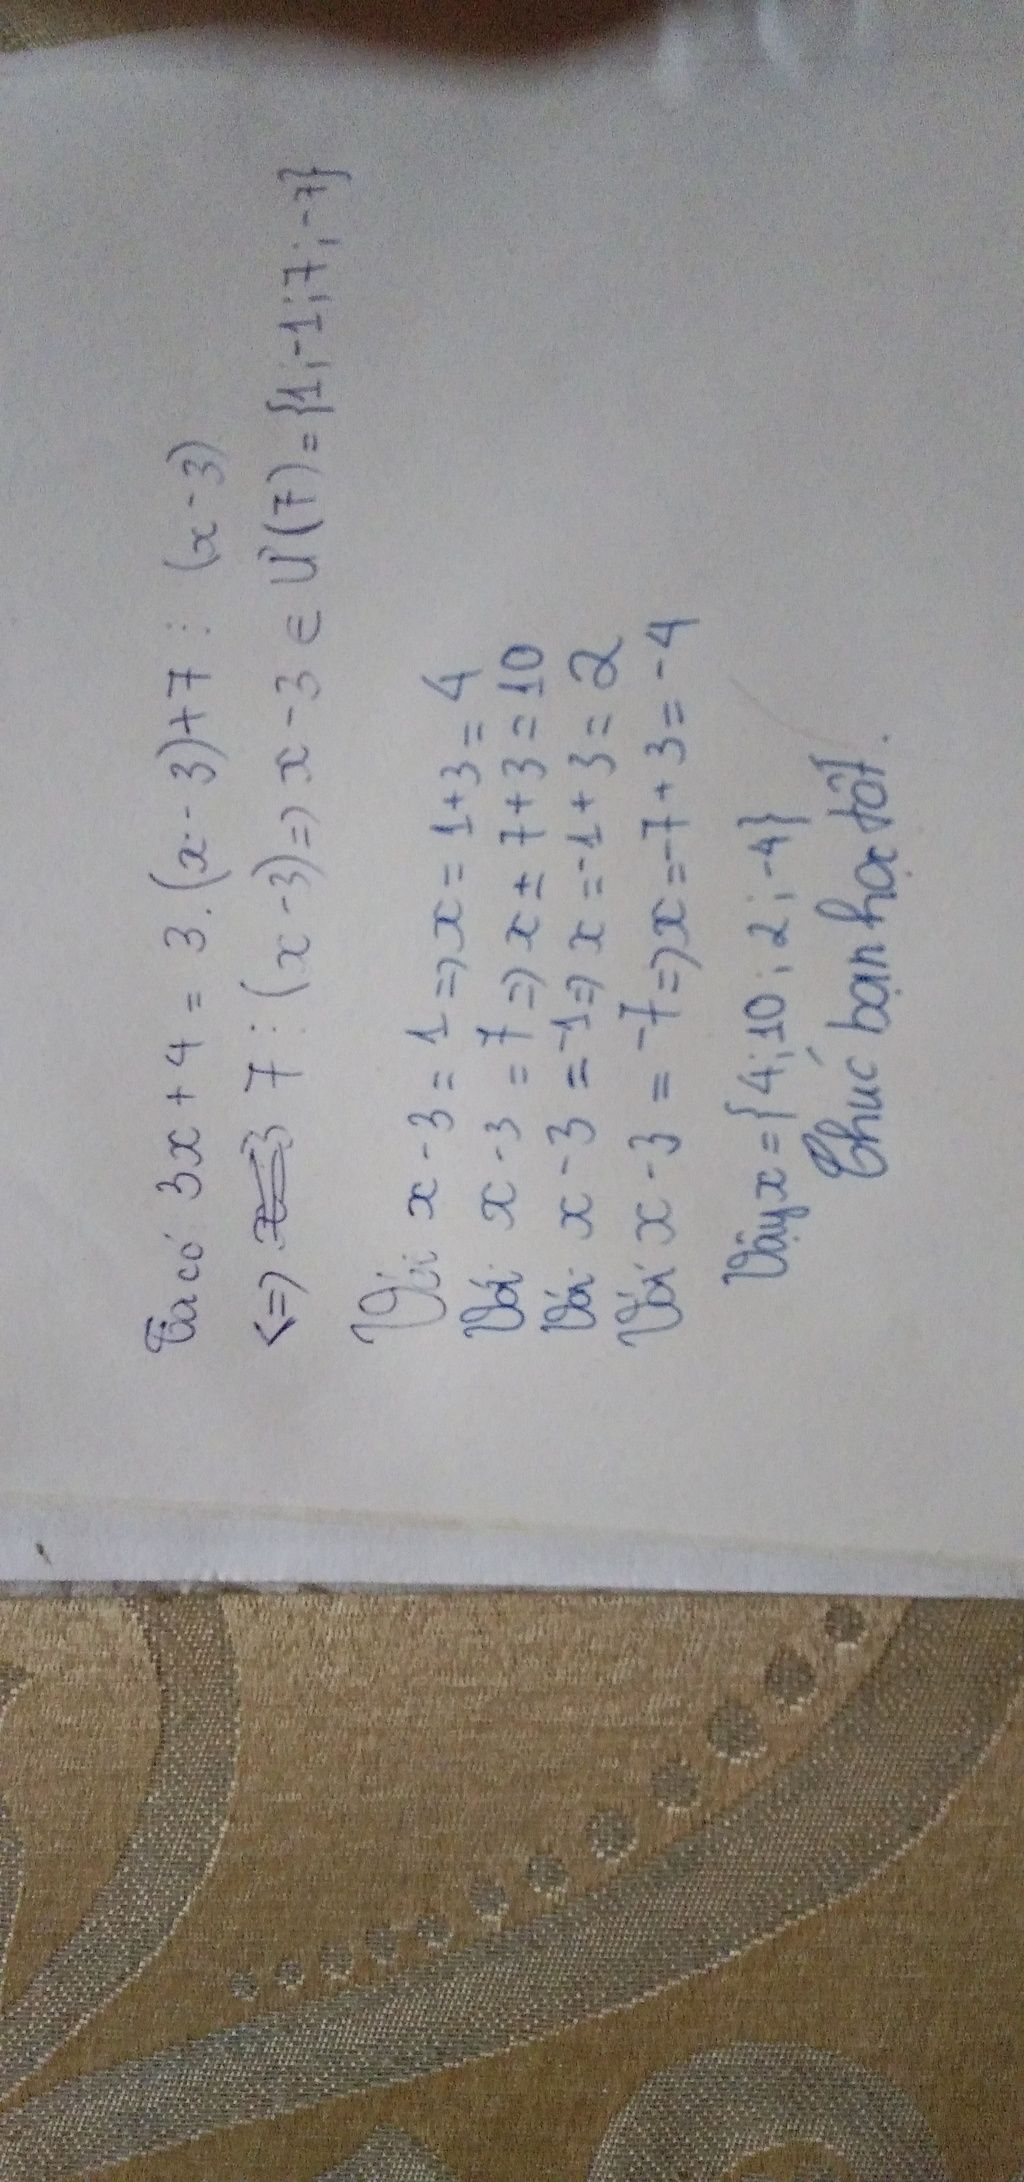 Ta có 3x + 4 = 3.(x - 3)+7 ⋮ (x - 3)
<=> 7 ⋮ (x - 3)=> x - 3 ∈ Ư(7) = {1;-1;7;-7}
Với x - 3 = 1 => x = 1+3 = 4
Với x - 3 = 7 => x = 7+3 = 10
Với x - 3 = -1 => x = -1+3 = 2
Với x - 3 = -7 => x = -7+3 = -4
Vậy x = {4;10;2;-4}
Chúc bạn học tốt.